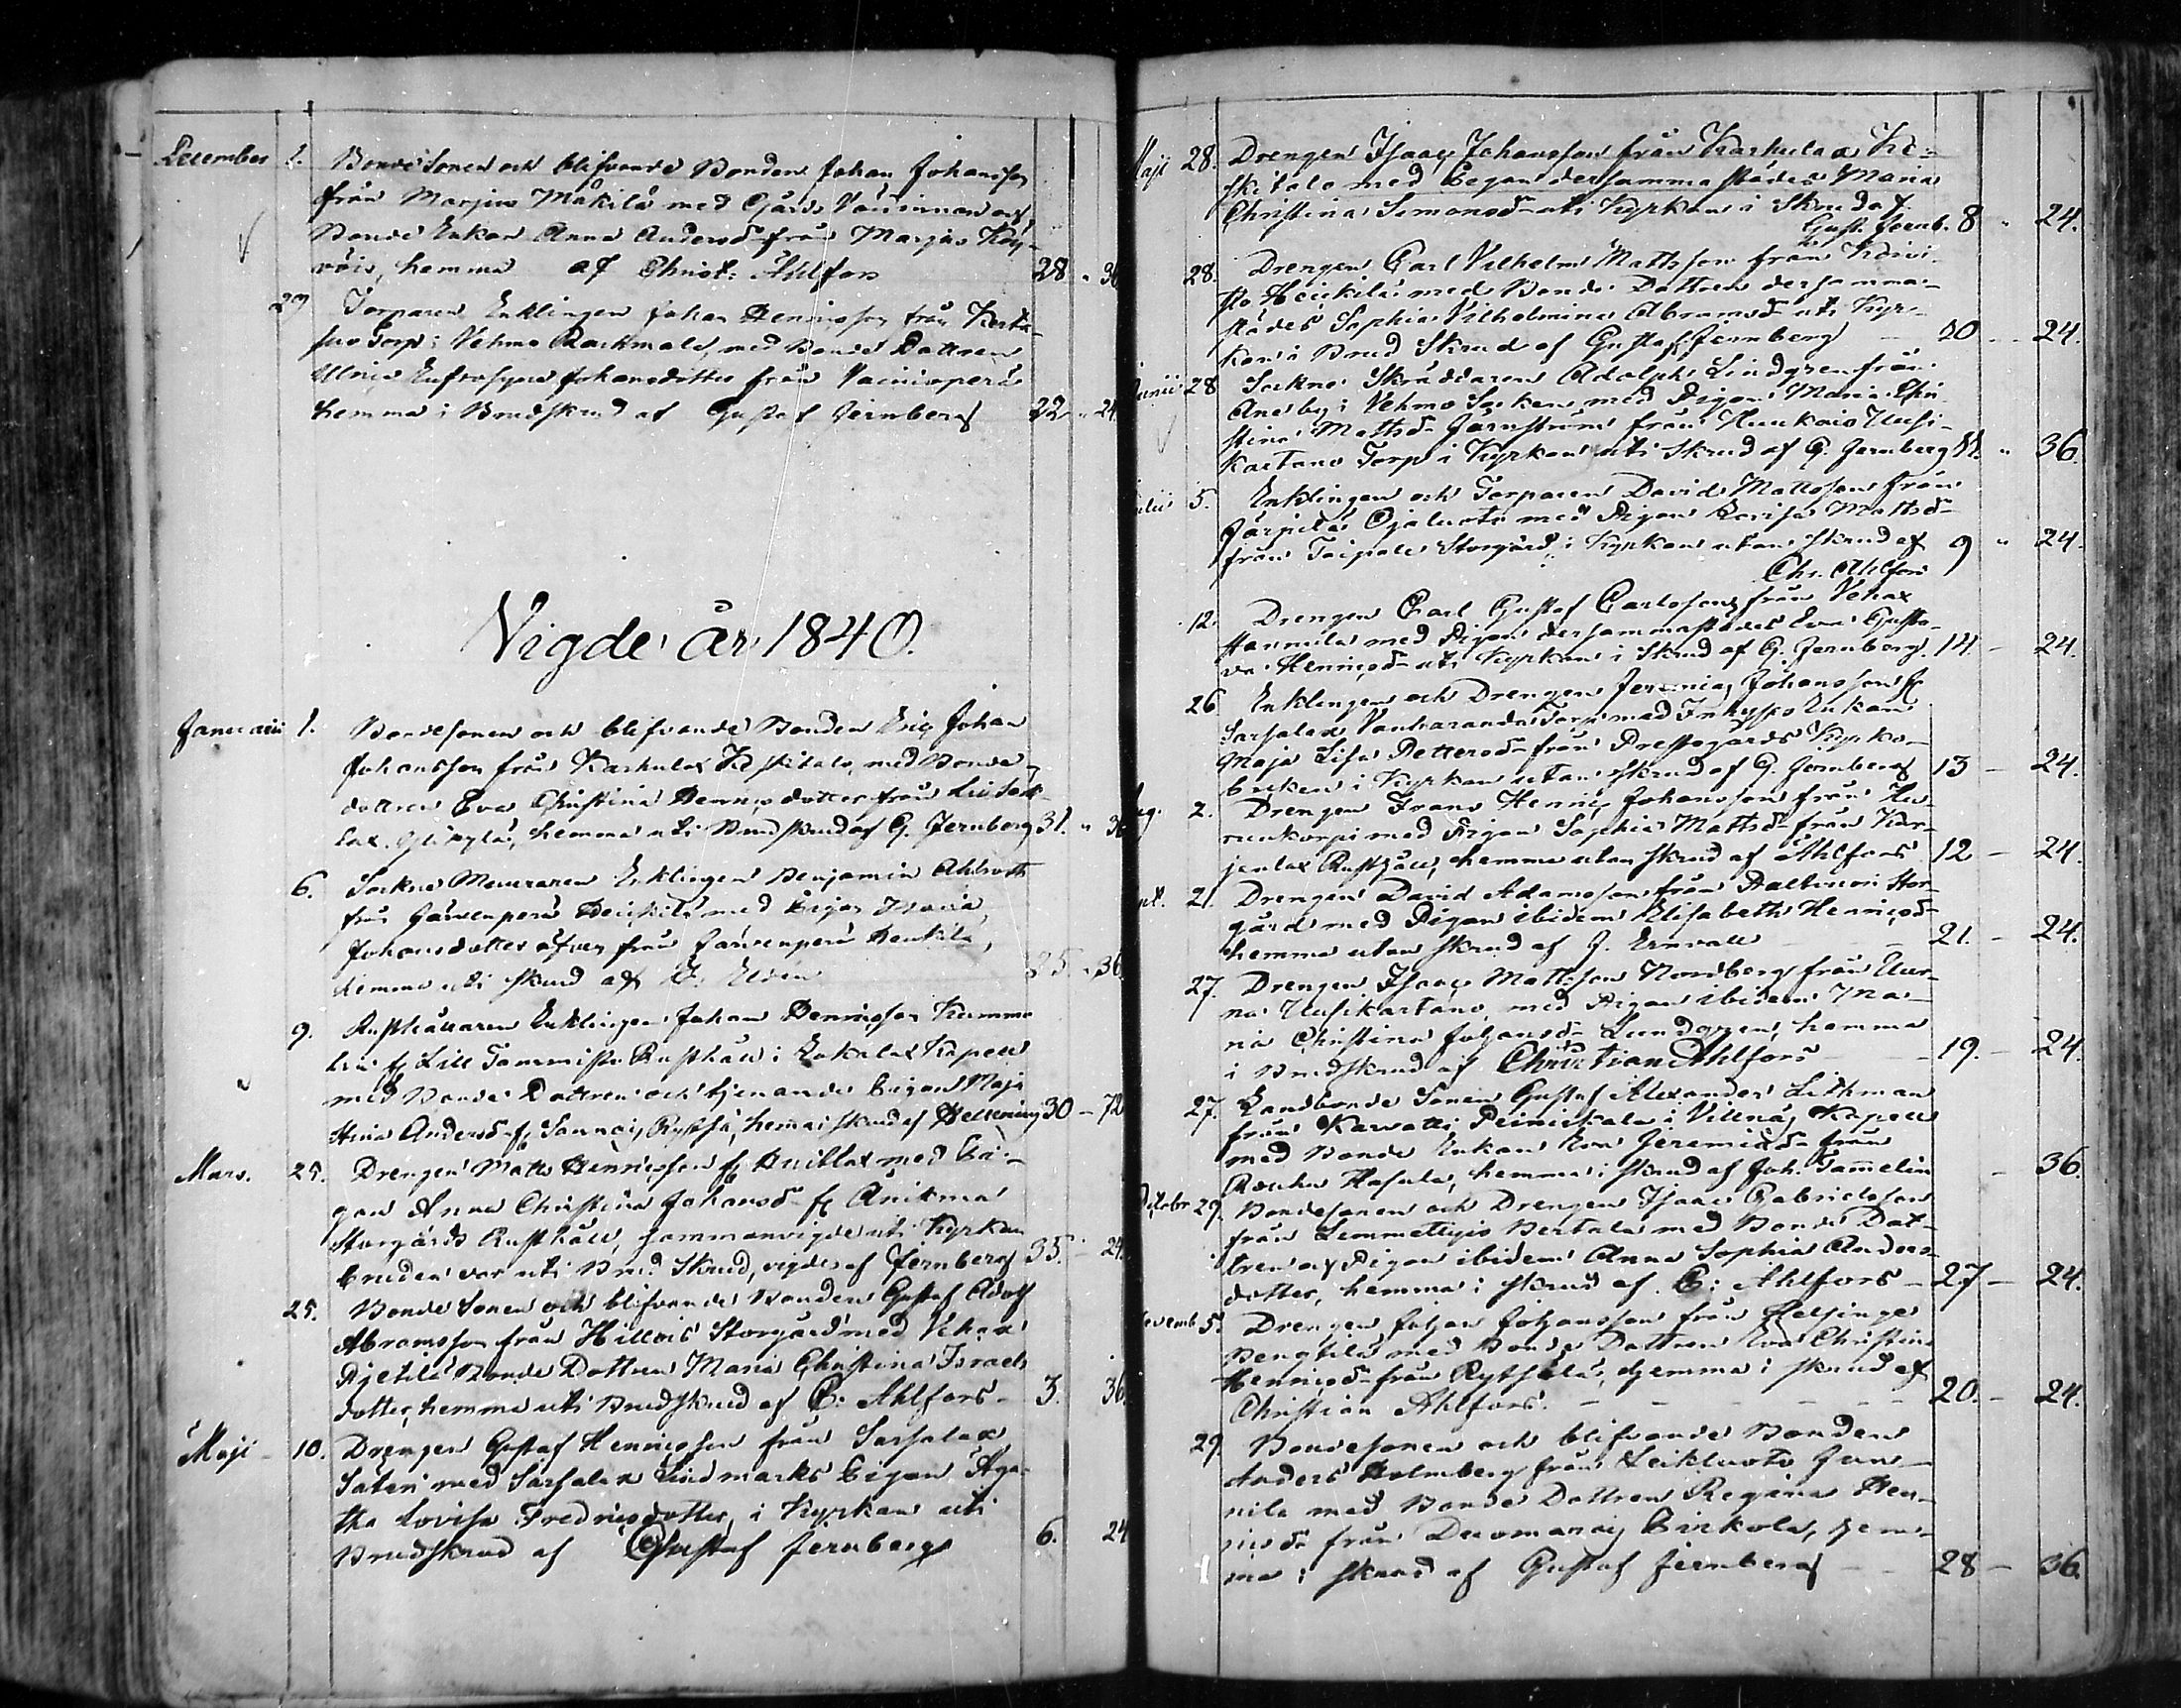 December 1. Bonde Sonen och blifvande Bonden Johan Johansson
från Marjus Mäkilä med Gårds Värdinnan och
Bonde Enkan Anna Andersd. från Marjus Köy-
röis, hemma af Christ: Ahlfors 28 " 36
29 Torparen Enklingen Johan Henricsson från
Torp i Vehmo med Bonde Dottren
Ulrica Eufrosyna Johansdotter från Vainionperä
hemma i Brudskrud af Gustaf Jernberg 22 " 24
Vigde år 1840.
Januarii 1. Bondesonen och blifvande Bonden Eric Johan
Johansson från Karhulax Keskitalo, med Bonde
dottren Eva Christina Henricsdotter från
Ylikylä, hemma uti Brudskrud af G. Jernberg 31. " 36
6. Sockne Muuraren Enklingen Benjamin Ahlroth
från Järvenperä Heickilä med Pigan Maria
Johansdotter äfven från Järvenperä
hemma uti skrud af 25 - 36.
9. Rusthållaren Enklingen Johan Henricsson
fr. Lill Tammisto Rusthåll i Lokalax Kapell
med Bonde Dottren och tjenande Pigan Maja
Stina Andersd. fr. Sannais hema i skrud af 30 - 72
Mars. 25. Drengen Matts Henricsson fr. med Pi-
gan Anna Christina Johansd. fr.
Storgårds Rusthåll, sammanvigde uti Kyrkan
bruden var uti Brud Skrud, vigde af Jernberg 35. - 24.
25. Bonde Sonen och blifvande Bonden Gustaf Adolf
Abramsson från Hillois Storgård med Vehax
Bonde Dottren Maria Christina Israels
dotter, hemma uti Brudskrud af C: Ahlfors - 3. 36.
Maji - 10. Drengen Gustaf Henricsson från Sarsalax
Säteri med Sarsalax Lindmarks Pigan Aga-
tha Lovisa Fredricsdotter, i Kyrkan uti
Brudskrud af Gustaf Jernberg 6. 24
Maji 28. Drengen Isaac Johansson från Karhulax Ke-
skitalo med Pigan dersammastädes Maria
Christina Simonsd. uti Kyrkan i Skrud af
Gust. Jernb. 8 " 24.
28. Drengen Carl Vilhelm Mattsson från
Heickilä med Bonde Dottren dersamma-
städes Sophia Vilhelmina Abramsd. uti Kyr-
kan i Brud Skrud af Gustaf Jernberg - 20 - 24.
Junii 28 Sockne Skräddaren Adolph Lindgren från
i Vehmo Socken med Pigan Maria Chri-
stina Mattsd. Järnström från Uusi-
kartano Torp i Kyrkan uti Skrud af G. Jernberg 11. " 36.
Julii 5. Enklingen och Torparen David Mattsson från
Järpilä Ojaluoto med Pigan Lovisa Mattsd.
från Taipale Storgård, i Kyrkan utan skrud af 9 " 24.
Chr. Ahlfors
12. Drengen Carl Gustaf Carlsson från Vehax
Hannula med Pigan dersammastädes Eva Gusta-
va Henricsd. uti Kyrkan i Skrud af G. Jernberg. 14. - 24.
26 Enklingen och Drengen Jeremias Johansson fr.
Sarsalax Vanharanda Torp med Inhyses Enkan
Maja Lisa Pettersd. från Prestgårds Kyrko-
backen i Kyrkan utan skrud af G. Jernberg 13 - 24.
Aug. 2. Drengen Frans Henric Johansson från Hu-
runkorpi med Pigan Sophia Mattsd. från Kar-
jenlax Rusthåll, hemma utan skrud af Ahlfors 12 - 24.
Sept. 21. Drengen David Adamsson från Palturi Stor-
gård med Pigan ibidem Elisabeth Henricsd.
hemma utan skrud af J. Ervall - 21. - 24.
27. Drengen Isaac Mattsson Nordberg från
Uusikartano, med Pigan ibidem Ma-
ria Christina Johansd. Lundgren, hemma
i Brudskrud af Christian Ahlfors - 19. - 24.
27. Landbonde Sonen Gustaf Alexander Lithman
från i Villnäs Kapell
med Bonde Enkan Eva Jeremiæd. från
hemma i skrud af Joh: Tammelin - 36.
October 29. Bondesonen och Drengen Isaac Gabrielsson
från Lemmettyis Pertala med Bonde Dot-
tren och Pigan ibidem Anna Sophia Anders-
dotter, hemma i skrud af C: Ahlfors - 27 - 24.
Novemb 5. Drengen Johan Johansson från Helsinge
Pengtilä med Bonde Dottren Eva Christina
Henricsd. från hemma i skrud af
Christian Ahlfors. - 20. - 24.
29. Bondesonen och blifvande Bonden
Anders Holmberg från Leikluoto Jun-
nila med Bonde Dottren Regina Hen-
ricsd. från Pirkola, hem-
ma i skrud af Gustaf Jernberg - 28 - 36.